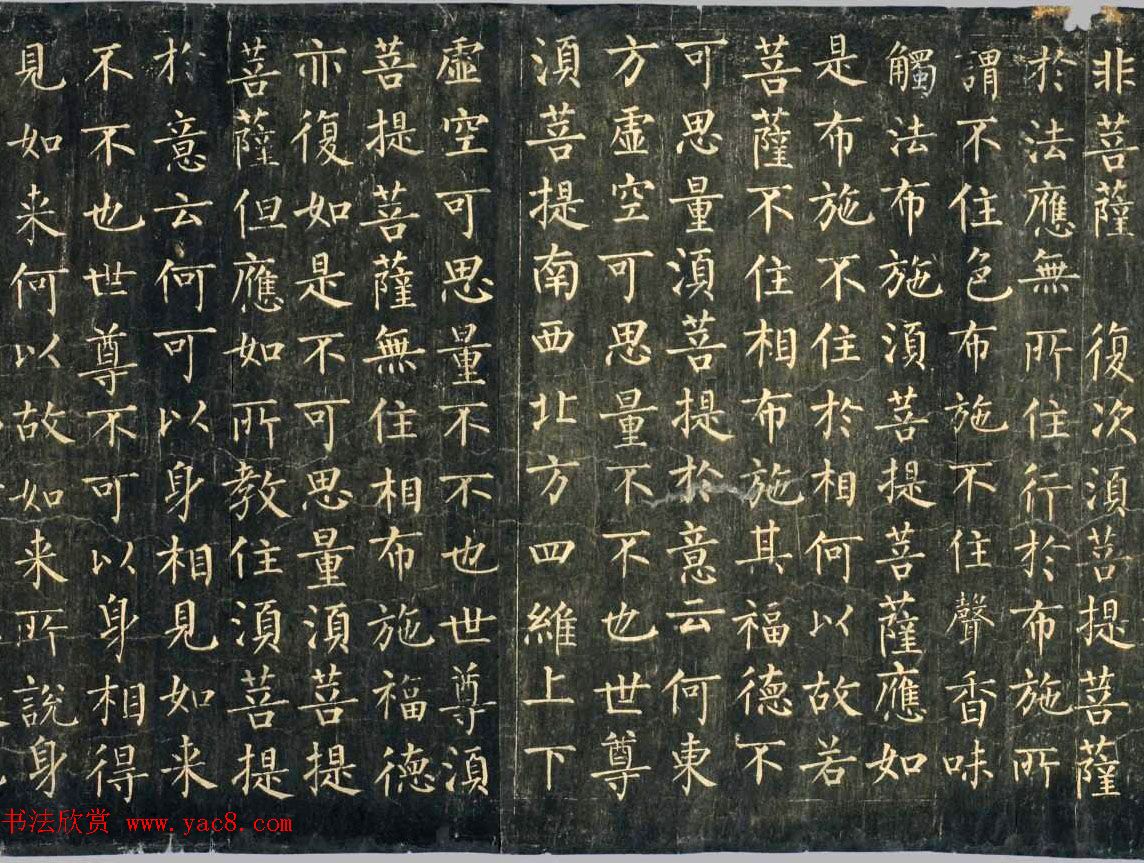 非菩薩　復次須菩提菩薩
於法應無所住行於布施所
謂不住色布施不住聲香味
觸法布施須菩提菩薩應如
是布施不住於相何以故若
菩薩不住相布施其福德不
可思量須菩提於意云何東
方虛空可思量不不也世尊
須菩提南西北方四維上下
虛空可思量不不也世尊須
菩提菩薩無住相布施福德
亦復如是不可思量須菩提
菩薩但應如所教住須菩提
於意云何可以身相見如来
不不也世尊不可以身相得
見如来何以故如来所說身
书法欣赏 www.yac8.com